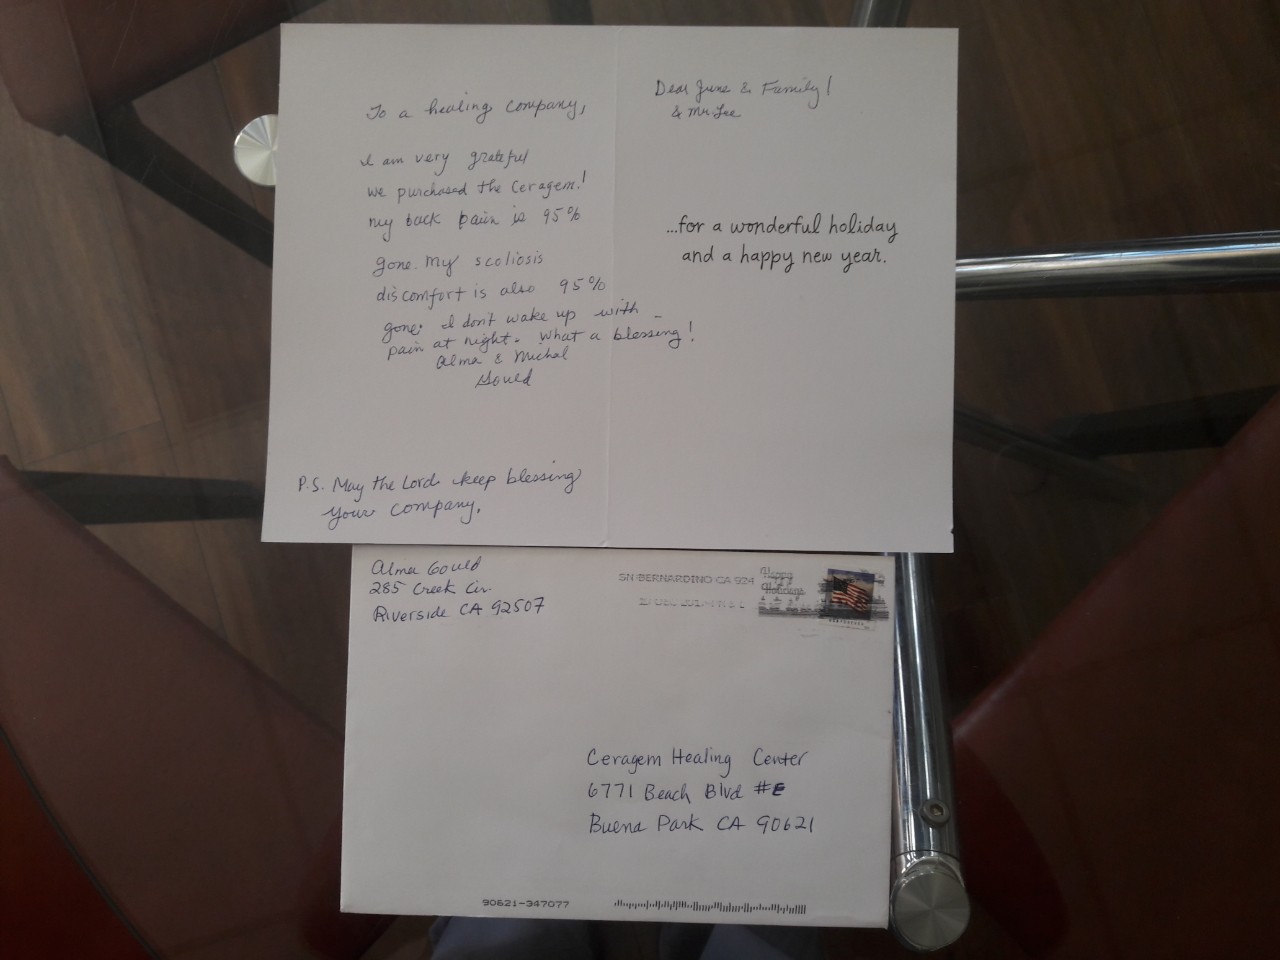 To a healing company,
I am very grateful
we purchased the Ceragem!
my back pain is 95%
gone. My scoliosis
discomfort is also 95%
gone. I don't wake up with
pain at night. What a blessing!
Alma & Michal
Gould
P.S. May the Lord keep blessing
your company.
Dear June & Family!
& Mr. Lee
...for a wonderful holiday
and a happy new year.
Alma Gould
285 Creek Cir.
Riverside CA 92507
SN BERNARDINO CA 924
Happy
Holidays
Ceragem Healing Center
6771 Beach Blvd #E
Buena Park CA 90621
90621-347077